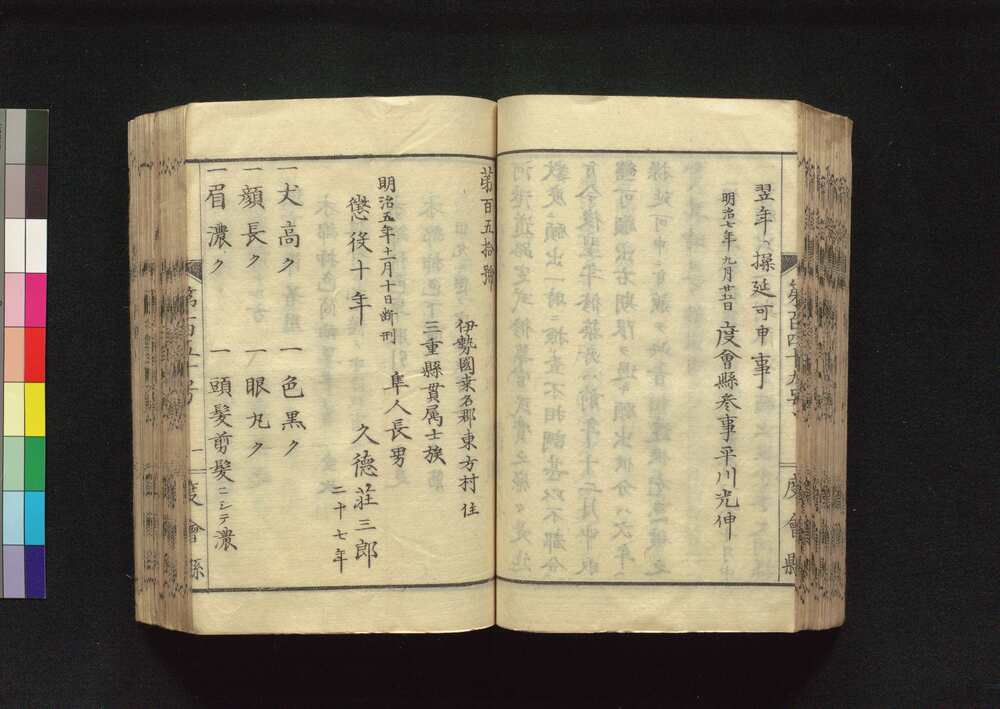 翌年ヘ操延可申事
明治七年九月廿五日 度會縣參事平川光伸
第百四十九号
度會縣
第百五拾號
伊勢國桑名郡東方村住
三重縣貫属士族
隼人長男
明治五年十一月十日断刑
懲役十年 久徳荘三郎
二十七年
一犬高ク 一色黒ク
一顔長ク 一眼丸ク
一眉濃ク 一頭髪剪髪ニシテ濃
第百五十号
度會縣